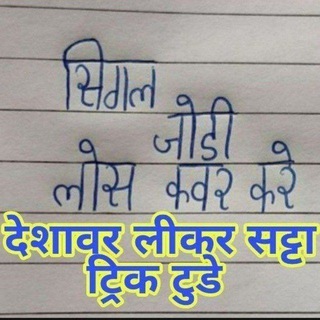 सिंगल
जोडी
लोस कवर करे
देशावर लीकर सट्टा
ट्रिक टुडे